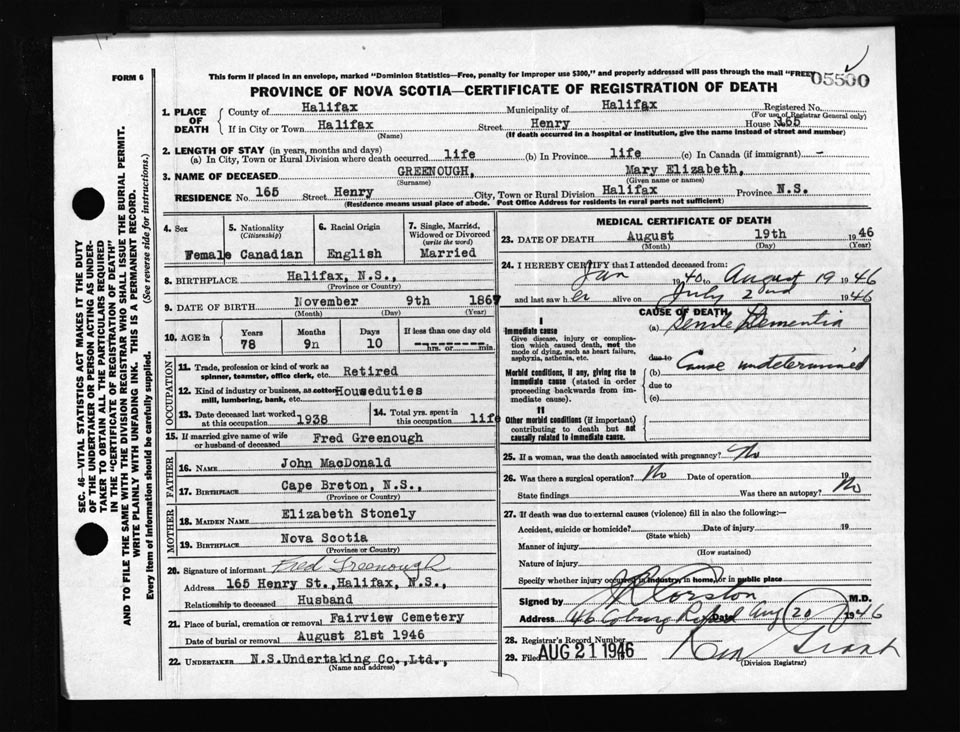 FORM 6
This form if placed in an envelope, marked "Dominion Statistics—Free, penalty for improper use $300," and properly addressed will pass through the mail "FREE"
05500
PROVINCE OF NOVA SCOTIA—CERTIFICATE OF REGISTRATION OF DEATH
1. PLACE OF DEATH
County of Halifax Municipality of Halifax Registered No.
(For use of Registrar General only)
If in City or Town Halifax Street Henry House No. 165
(Name) (If death occurred in a hospital or institution, give the name instead of street and number)
2. LENGTH OF STAY (in years, months and days)
(a) In City, Town or Rural Division where death occurred life (b) In Province life (c) In Canada (if immigrant) -
3. NAME OF DECEASED GREENOUGH, Mary Elizabeth,
(Surname) (Given name or names)
RESIDENCE No. 165 Street Henry City, Town or Rural Division Halifax Province N.S.
(Residence means usual place of abode. Post Office Address for residents in rural parts not sufficient)
4. Sex Female
5. Nationality (Citizenship) Canadian
6. Racial Origin English
7. Single, Married, Widowed or Divorced (write the word) Married
8. BIRTHPLACE Halifax, N.S.,
(Province or Country)
9. DATE OF BIRTH November 9th 1867
(Month) (Day) (Year)
10. AGE in Years 78 Months 9n Days 10 If less than one day old
hrs. or min.
OCCUPATION
11. Trade, profession or kind of work as spinner, teamster, office clerk, etc. Retired
12. Kind of industry or business, as cotton mill, lumbering, bank, etc. Houseduties
13. Date deceased last worked at this occupation 1938
14. Total yrs. spent in this occupation life
15. If married give name of wife or husband of deceased Fred Greenough
FATHER
16. NAME John MacDonald
17. BIRTHPLACE Cape Breton, N.S.,
(Province or Country)
MOTHER
18. MAIDEN NAME Elizabeth Stonely
19. BIRTHPLACE Nova Scotia
(Province or Country)
20. Signature of informant Fred Greenough
Address 165 Henry St., Halifax, N.S.,
Relationship to deceased Husband
21. Place of burial, cremation or removal Fairview Cemetery
Date of burial or removal August 21st 1946
22. UNDERTAKER N.S.Undertaking Co.,Ltd.,
(Name and address)
MEDICAL CERTIFICATE OF DEATH
23. DATE OF DEATH August 19th 1946
(Month) (Day) (Year)
24. I HEREBY CERTIFY that I attended deceased from:
Jan 1940 to August 19 1946
and last saw her alive on July 22nd 1946
CAUSE OF DEATH
I
Immediate cause
Give disease, injury or complication which caused death, not the mode of dying, such as heart failure, asphyxia, asthenia, etc.
(a) Senile Dementia
due to
Morbid conditions, if any, giving rise to immediate cause (stated in order proceeding backwards from immediate cause).
(b) Cause undetermined
due to
(c)
II
Other morbid conditions (if important) contributing to death but not causally related to immediate cause.
25. If a woman, was the death associated with pregnancy? No
26. Was there a surgical operation? No Date of operation 19
State findings Was there an autopsy? No
27. If death was due to external causes (violence) fill in also the following:—
Accident, suicide or homicide? Date of injury 19
(State which)
Manner of injury
(How sustained)
Nature of injury
Specify whether injury occurred in industry, in home, or in public place
Signed by Corston M.D.
Address 46 Coburg Rd Date Aug 20 1946
28. Registrar's Record Number
29. Filed AUG 21 1946
(Division Registrar)
SEC. 46—VITAL STATISTICS ACT MAKES IT THE DUTY
OF THE UNDERTAKER OR PERSON ACTING AS UNDER-
TAKER TO OBTAIN ALL THE PARTICULARS REQUIRED
IN THE "CERTIFICATE OF REGISTRATION OF DEATH"
AND TO FILE THE SAME WITH THE DIVISION REGISTRAR WHO SHALL ISSUE THE BURIAL PERMIT.
WRITE PLAINLY WITH UNFADING INK. THIS IS A PERMANENT RECORD.
Every item of information should be carefully supplied. (See reverse side for instructions.)